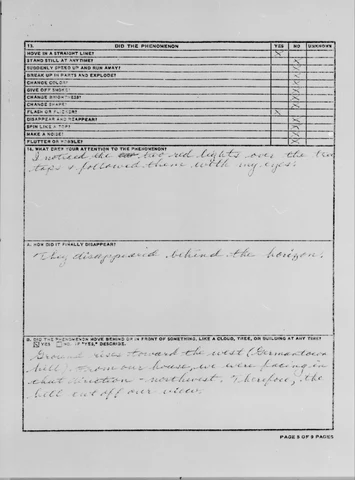 13. DID THE PHENOMENON YES NO UNKNOWN
MOVE IN A STRAIGHT LINE? X
STAND STILL AT ANYTIME? X
SUDDENLY SPEED UP AND RUN AWAY? X
BREAK UP IN PARTS AND EXPLODE? X
CHANGE COLOR? X
GIVE OFF SMOKE? X
CHANGE BRIGHTNESS? X
CHANGE SHAPE? X
FLASH OR FLICKER? X
DISAPPEAR AND REAPPEAR? X
SPIN LIKE A TOP? X
MAKE A NOISE? X
FLUTTER OR WOBBLE? X
14. WHAT DREW YOUR ATTENTION TO THE PHENOMENON?
I noticed the two red lights over the tree
tops & followed them with my eyes.
A. HOW DID IT FINALLY DISAPPEAR?
They disappeared behind the horizon.
B. DID THE PHENOMENON MOVE BEHIND OR IN FRONT OF SOMETHING, LIKE A CLOUD, TREE, OR BUILDING AT ANY TIME?
YES NO. IF "YES," DESCRIBE.
Ground rises toward the west (Germantown
hill). From our house, we were facing in
that direction - northwest. Therefore, the
hill cut off our view.
PAGE 5 OF 9 PAGES